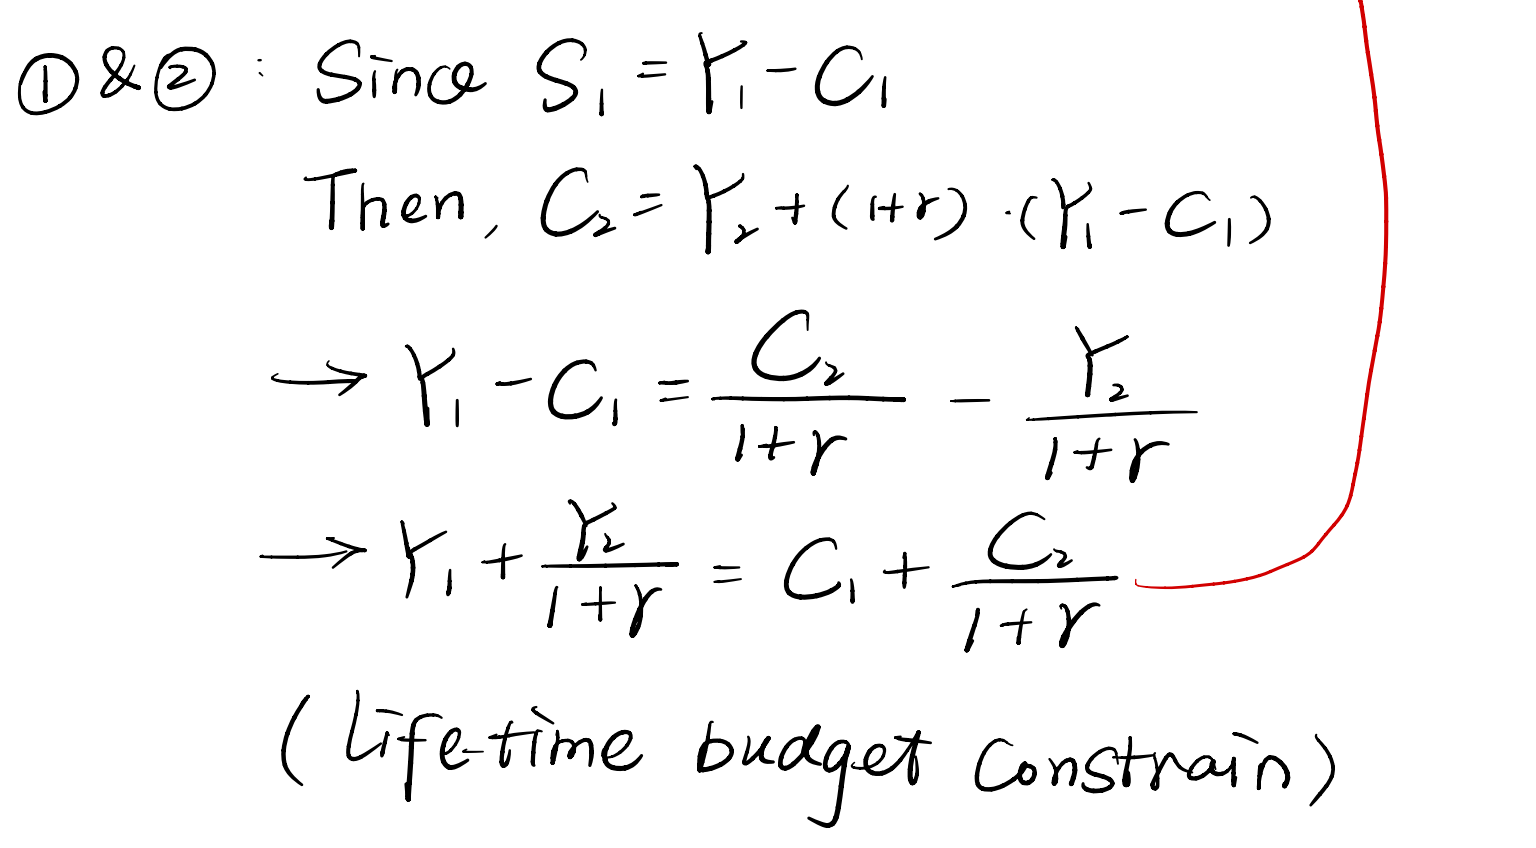 ① & ② : Since S₁ = Y₁ - C₁
Then, C₂ = Y₂ + (1+r) · (Y₁ - C₁)
→ Y₁ - C₁ = C₂/(1+r) - Y₂/(1+r)
→ Y₁ + Y₂/(1+r) = C₁ + C₂/(1+r)
(Life-time budget constrain)